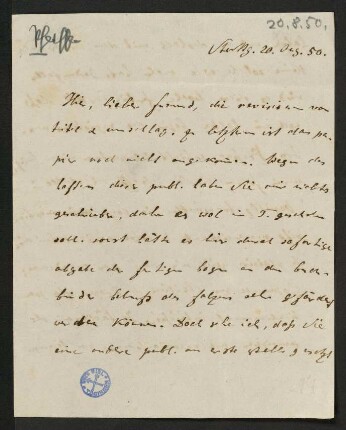 Pfeiffer
20.8.50.
Stuttg. 20. Aug. 50.
Hier, lieber freund, die revisionen von
titel & umschlag. zu letzterm ist das pa-
pier noch nicht angekommen. Wegen des
dieser publ. haben Sie mir nichts
geschrieben, daher es wol in T. geschehen
soll. sonst hätte es hier durch sofortige
abgabe der fertigen bogen an den buch-
binder behufs des falzens sehr gefördert
werden können. Doch sehe ich, daß Sie
eine andere publ. an erste stelle gesetzt